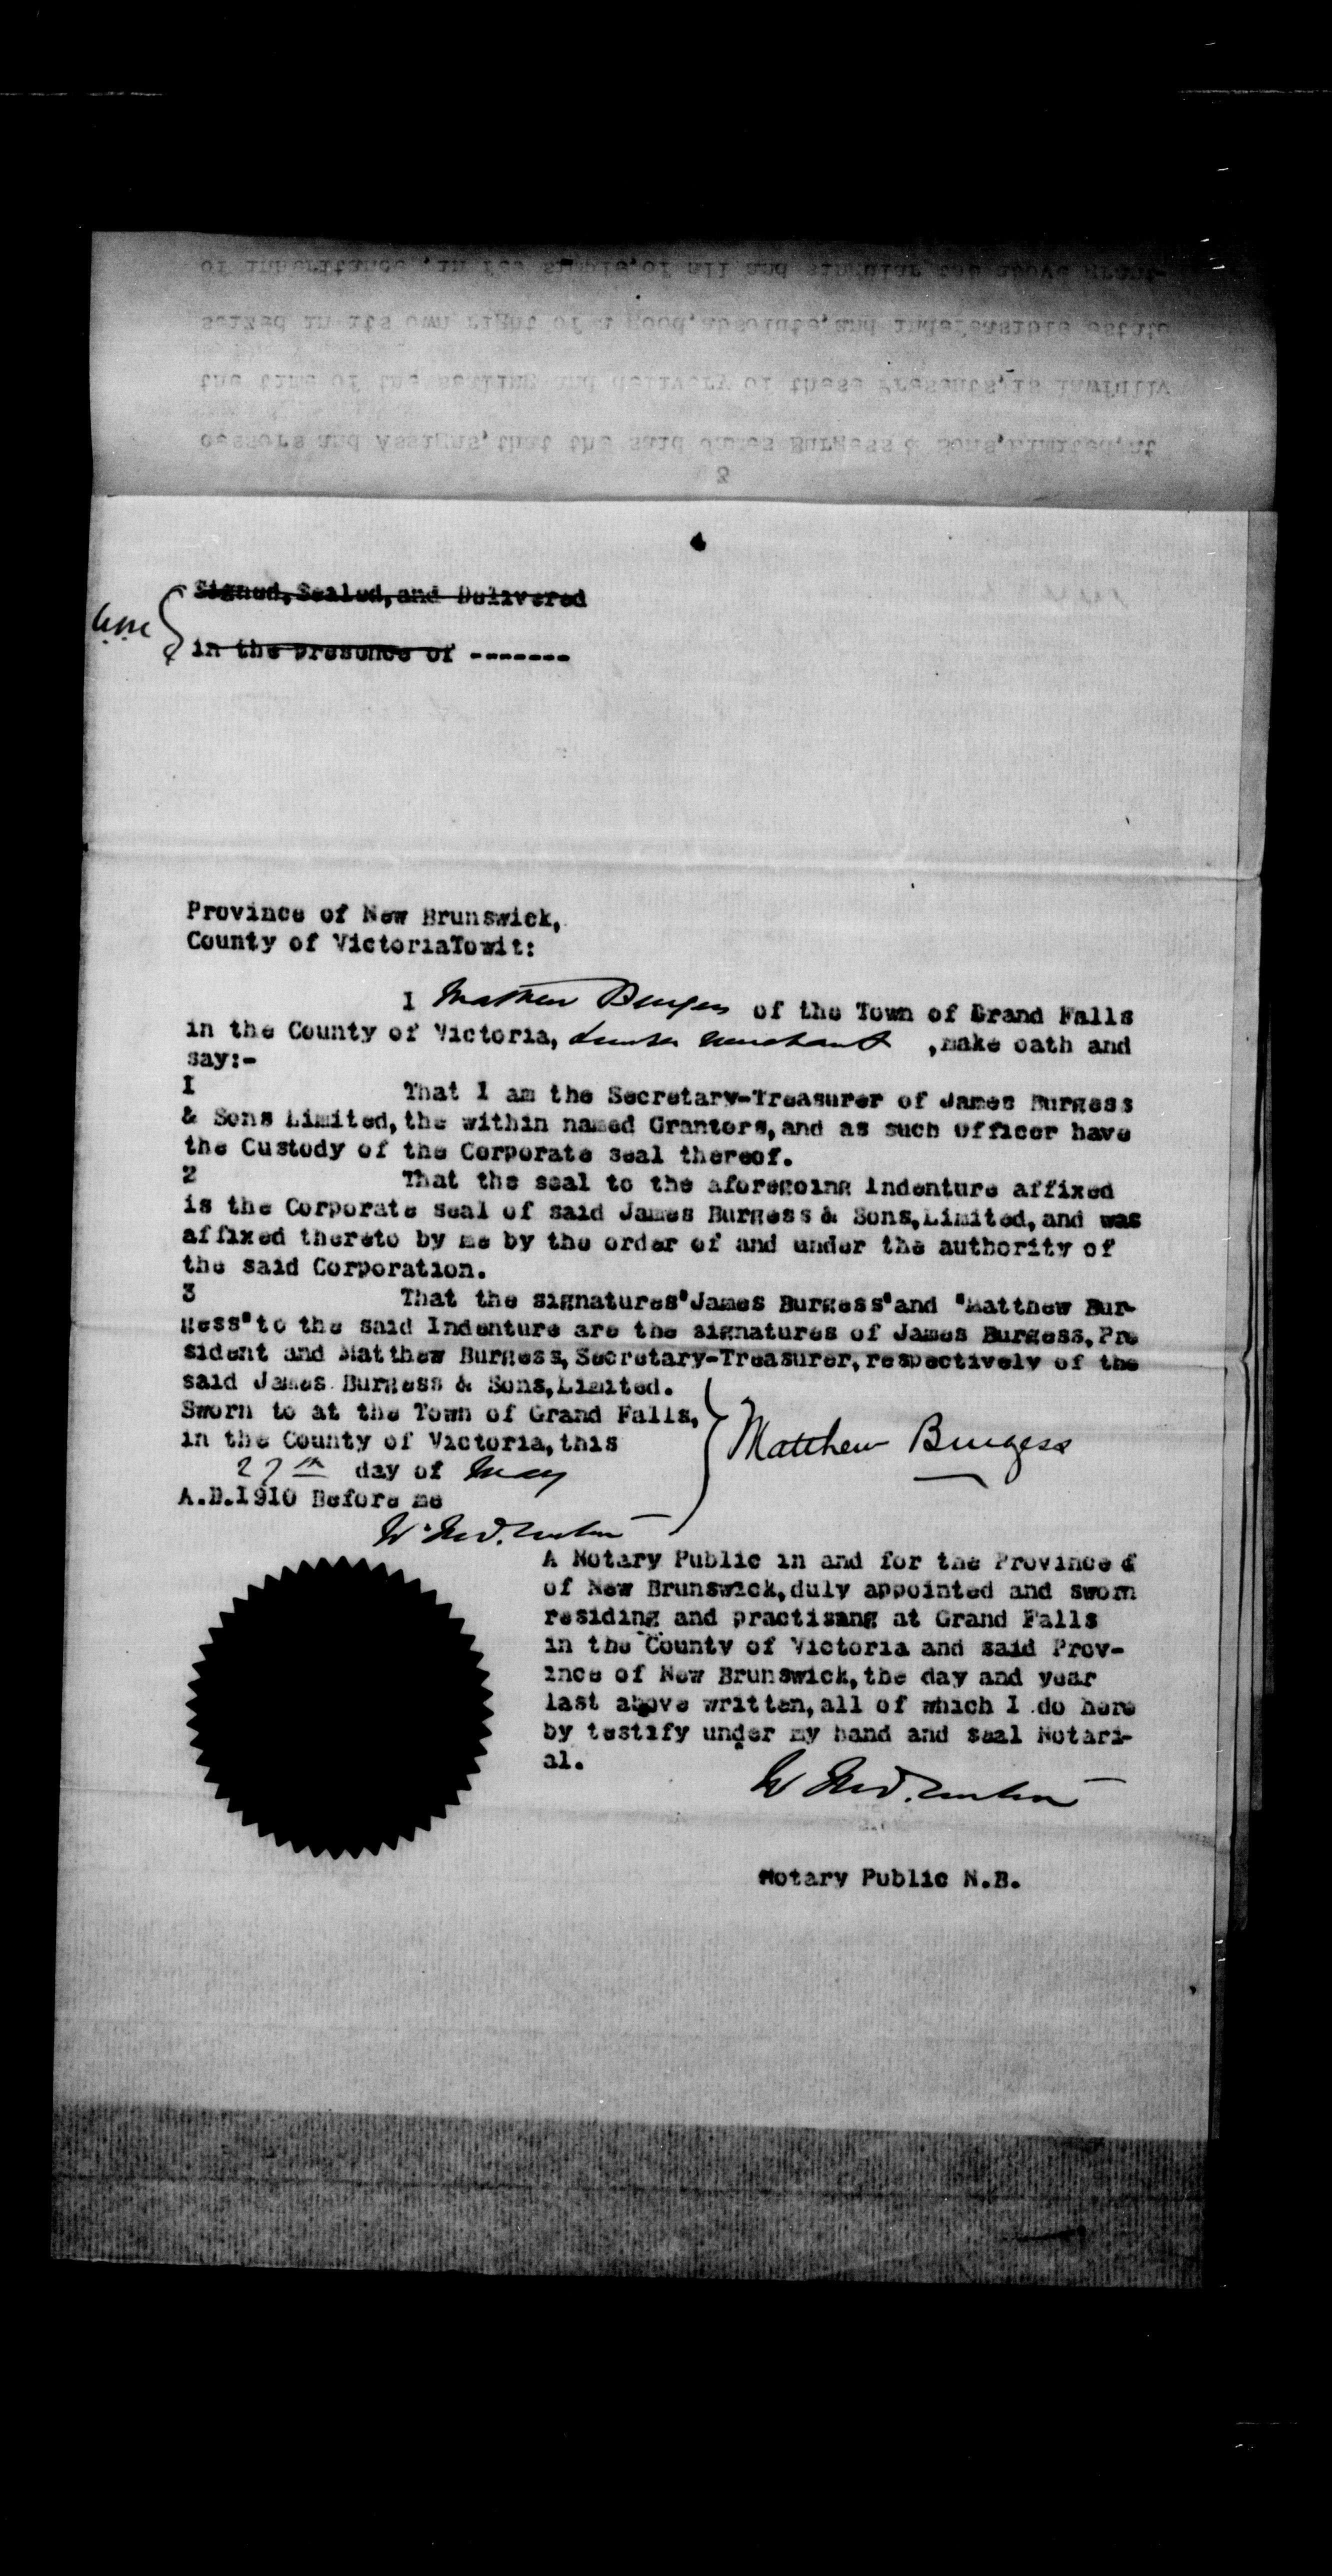 of inheritance, in fee simple, of all and singular the above grant-
seized in its own right of a good, absolute, and indefeasible estate
the time of the sealing and delivery of these Presents, is lawfully
cessors and Assigns, that the said James Burgess & Sons, Limited, at
3
4
Signed, Sealed, and Delivered
in the presence of -------
Province of New Brunswick,
County of VictoriaTowit:
I Matthew Burgess of the Town of Grand Falls
in the County of Victoria, Lumber Merchant ,make oath and
say:-
I That I am the Secretary-Treasurer of James Burgess
& Sons Limited, the within named Grantors, and as such Officer have
the Custody of the Corporate seal thereof.
2 That the seal to the aforegoing Indenture affixed
is the Corporate seal of said James Burgess & Sons, Limited, and was
affixed thereto by me by the order of and under the authority of
the said Corporation.
3 That the signatures"James Burgess"and "Matthew Bur-
gess"to the said Indenture are the signatures of James Burgess, Pre
sident and Matthew Burgess, Secretary-Treasurer, respectively of the
said James Burgess & Sons, Limited.
Sworn to at the Town of Grand Falls,
in the County of Victoria, this
27th day of May
A.D.1910 Before me
Matthew Burgess
A Notary Public in and for the Province &
of New Brunswick, duly appointed and sworn
residing and practisang at Grand Falls
in the County of Victoria and said Prov-
ince of New Brunswick, the day and year
last above written, all of which I do here
by testify under my hand and seal Notari-
al.
Notary Public N.B.